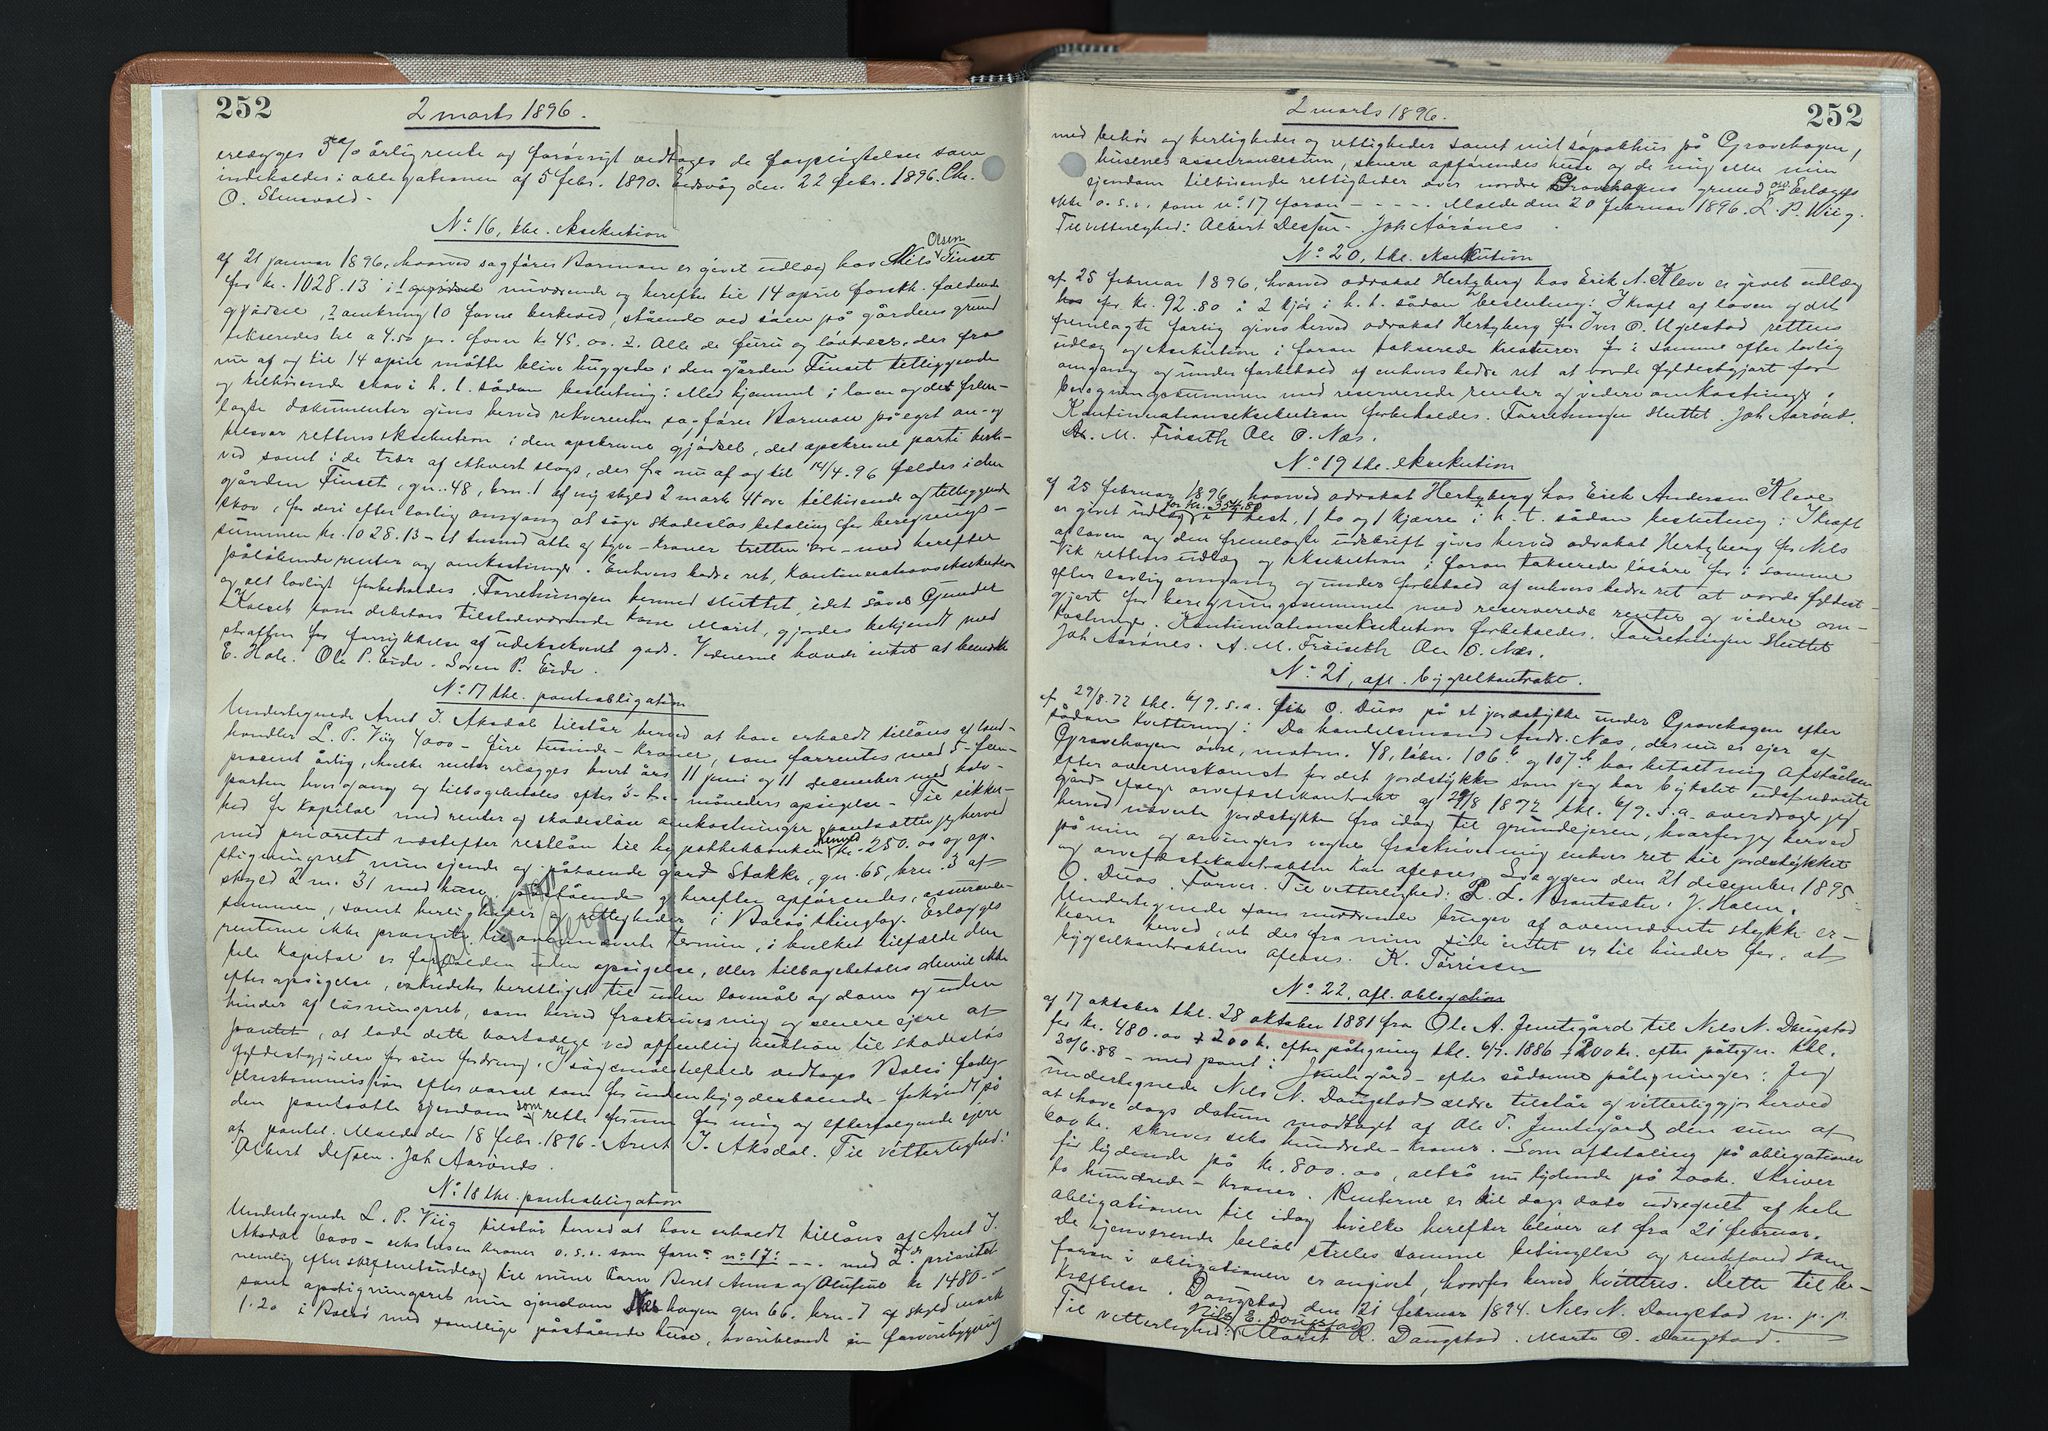 252
2 marts 1896.
erlægges årlig rente og forøvrigt vedtages de forpligtelser som
indeholdes i obligationen af 5 febr. 1890. Eidsvåg den 22 febr. 1896. Chr.
O. Stensvold.
No 16, thl. eksekution
af 21 januar 1896, hvorved sagfører Borman er givet udlæg hos Nils Olsen Finset
for kr. 1028.13 i 1 nuværende og herefter til 14 april førstk. faldende
gjødsel, 2 omkring 10 favne berkeved, stående ved søen på gårdens grund
takseredes til a 4.50 pr. favn kr 45.00. 2. Alle de furu og løvtrær, der fra
nu af og til 14 april måtte blive huggede i den gården Finset tilliggende
og tilhørende skov i h. t. sådan beslutning: Med hjemmel i loven og de frem-
lagte dokumenter gives herved rekvirenten sagfører Borman på eget an-
svar rettens eksekution i den opskrevne gjødsel, det opskrevne parti berke-
ved samt i de trær af ethvert slags, der fra nu af og til 14/4.96 fældes i den
gården Finset, gn. 48, brn. 1 af ny skyld 2 mark 41 øre tilhørende og tilliggende
skov, for deri efter lovlig omgang at søge skadesløs betaling for beregnings-
summen kr. 1028.13 - et tusind otte og tyve - kroner tretten øre - med herefter
påløbende renter og omkostninger. Enhvers bedre ret, kontinuationseksekution
og alt lovligt forbeholdes. Forretningen hermed sluttet, idet såvel Gunder
som debitors tilstedeværende kone Marit, gjordes bekjendt med
straffen for forrykkelse af udekskveret gods. Vidnerne havde intet at bemærke
E. Hole. Ole P. Eide. Søren P. Eide.
No 17 thl. pantobligation
Undertegnede Arnt I. Aksdal tilstår herved at have erholdt tillåns af land-
handler L. P. Viig 4000 - fire tusinde - kroner, som forrentes med 5 - fem -
procent årlig, hvilke renter erlægges hvert års 11 juni og 11 december med halv-
parten hver gang og tilbagebetales efter 3 - tre - måneders opsigelse - Til sikker-
hed for kapital med renter og skadesløse omkostninger pantsætter jeg herved
med prioritet næstefter restlån til hypothekbanken kr. 250.00 og op-
stigningsret min eiende og påboende gård Stokke, gn. 65, brn. 3 af
skyld 2 m. 31 med huse, påstående og herefter opførendes, assurance-
summen, samt herligheder og rettigheder i Bolsø thinglag. Erlægges
renterne ikke promte til ovennævnte termin, i hvilket tilfælde den
hele kapital er forfalden uden opsigelse, eller tilbagebetales denne ikke
efter opsigelse, er kreditor berettiget til uden lovmål og dom og uden
hinder af løsningsret, som herved fraskrives mig og senere eiere at
pantet, at lade dette bortsælge ved offentlig auktion til skadesløs
fyldestgjørelse for sin fordring. I søgemålstilfælde vedtages Bolsø forlig-
elseskommission efter varsel som for indenbygdsboende - forkyndt på
den pantsatte eiendom som rette forum for mig og efterfølgende eiere
af pantet. Molde den 18 febr. 1896. Arnt I. Aksdal. Til vitterlighed:
Albert Dessen. Joh Aarønes.
No 18 thl. pantobligation
Undertegnede L. P. Viig tilstår herved at have erholdt tillåns af Arnt I.
Aksdal 6000 - seks tusen kroner o.s.v. som foran no 17: - - - med 2den prioritet
nemlig efter skifteretsudlæg til mine børn Beret Anna og Olufine kr 1480 -
samt opstigningsret min eiendom hagen gn 66. brn. 7 af skyld mark
1.20 i Bolsø med samtlige påstående huse, hvoriblandt en farveribygning
252
2 marts 1896.
med behør og herligheder og rettigheder samt mit søpakhus på Gravehagen,
husenes assurancesum, senere opførendes huse og de mig eller min
eiendom tilhørende rettigheder over nordre Gravehagens grund osv. Erlægges
ikke o.s.v. som no 17 foran - - - - Molde den 20 februar 1896. L. P. Wiig.
Til vitterlighed: Albert Dessen. Joh Aarønes.
No 20, thl. eksekution
af 25 februar 1896, hvorved advokat Hertzberg hos Erik A. Kleve er givet udlæg
for kr. 92.80 i 2 kjør i h. t. sådan beslutning: I kraft af loven og det
fremlagte forlig gives herved advokat Hertzberg for Iver O. Ugelstad rettens
udlæg og eksekution i foran takserede kreaturer for i samme efter lovlig
omgang og under forbehold af enhvers bedre ret at vorde fyldestgjort for
beregningssummen med reserverede renter og videre omkostninger.
Kontinuationseksekution forbeholdes. Forretningen sluttet. Joh Aarønes.
A. M. Frøiseth Ole O. Næs.
No 19 thl. eksekution
af 25 februar 1896, hvorved advokat Hertzberg hos Erik Andersen Kleve
er givet udlæg for kr. 354.80 i 1 hest, 1 ko og 1 kjærre i h. t. sådan beslutning: I kraft
af loven og den fremlagte udskrift gives herved advokat Hertzberg for Nils
Vik rettens udlæg og eksekution i foran takserede løsøre for i samme
efter lovlig omgang og under forbehold af enhvers bedre ret at vorde fyldest-
gjort for beregningssummen med reserverede renter og videre om-
kostninger. Kontinuationseksekution forbeholdes. Forretningen sluttet
Joh Aarønes. A. M. Frøiseth Ole O. Næs.
No 21, afl. bygselkontrakt.
af 29/8.72 thl. 6/9. s.a. til O. Duos på et jordstykke under Gravehagen efter
sådan kvittering: Da handelsmand Andr. Næs, der nu er eier af
Gravehagen øvre, matrn. 48, løbn. 106b og 107b har betalt mig afståelsen
efter overenskomst for det jordstykke som jeg har bygslet udaf nævnte
gård ifølge arvefæstekontrakt af 29/8 1872 thl. 6/9. s.a. overdrager jeg
herved nævnte jordstykke fra idag til grundeieren, hvorfor jeg herved
på min og arvingers vegne fraskriver mig enhver ret til jordstykket
og arvefæstekontrakten kan aflæses. den 21 december 1895.
O. Duos. Farver. Til vitterlighed: P. L. J. Holm.
Undertegnede som nuværende bruger af ovennævnte stykke er-
klærer herved, at der fra min side intet er til hinder for, at
bygselkontrakten aflæses. K. Tørrissen
No 22, afl. obligation
af 17 oktober thl. 28 oktober 1881 fra Ole A. Jemtegård til Nils N. Daugstad
for kr. 480.00 + 200 k. efter påtegning thl. 6/7. 1886 + 200 k. efter påtegn. thl.
30/6.88 - med pant i Jemtegård - efter sådanne påtegninger: Jeg
undertegnede Nils N. Daugstad ældre tilstår og vitterliggjør herved
at have dags datum modtaget af Ole T. Jemtegård den sum af
600 kr. skrives seks hundrede - kroner. Som afbetaling på obligationen
før lydende på kr. 800.00, altså nu lydende på 200 k. skriver
to hundrede - kroner. Renterne er til dags dato udregnet af hele
obligationen til idag hvilke herefter bliver at fra 21 februar.
De gjenværende beløb stilles samme betingelse og rentefod som
foran i obligationen er angivet, hvorfor herved kvitteres. Dette til be-
kræftelse. Daugstad den 21 februar 1894. Nils N. Daugstad m. p. p.
Til vitterlighed: Nils E. Daugstad Marit K. Daugstad. Marte O. Daugstad.